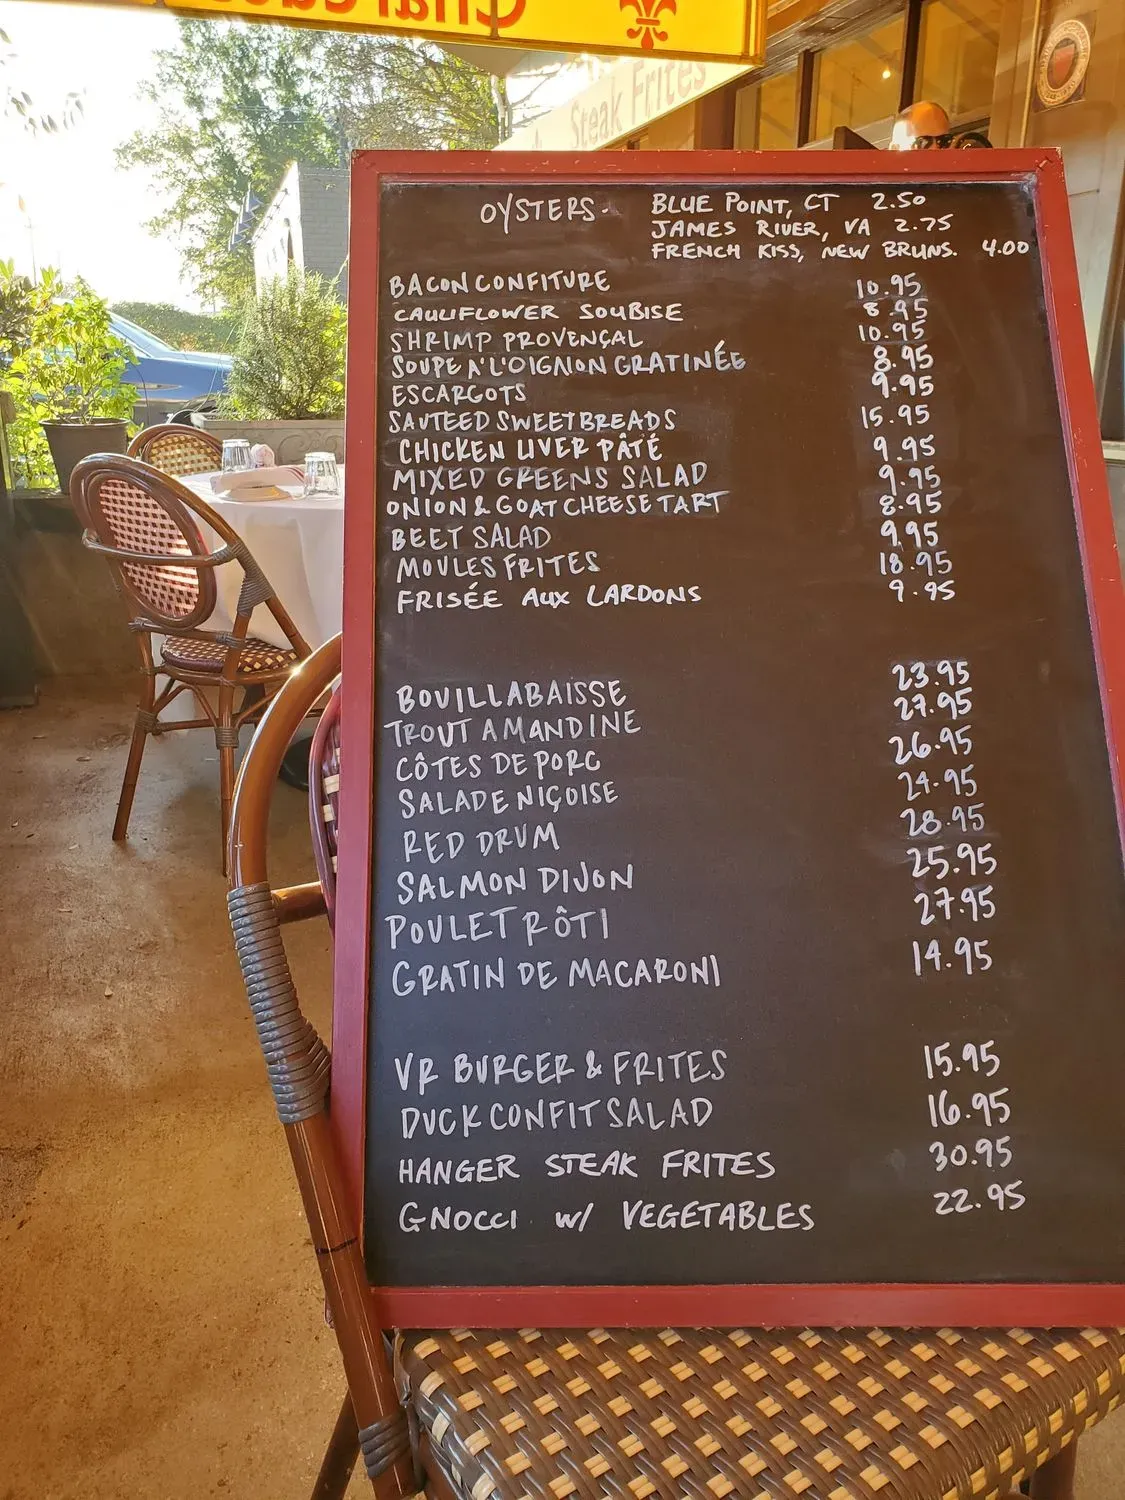 Steak Frites
OYSTERS- BLUE POINT, CT 2.50
JAMES RIVER, VA 2.75
FRENCH KISS, NEW BRUNS. 4.00
BACON CONFITURE 10.95
CAULIFLOWER SOUBISE 8.95
SHRIMP PROVENÇAL 10.95
SOUPE A L'OIGNON GRATINÉE 8.95
ESCARGOTS 9.95
SAUTEED SWEETBREADS 15.95
CHICKEN LIVER PÂTÉ 9.95
MIXED GREENS SALAD 9.95
ONION & GOAT CHEESE TART 8.95
BEET SALAD 9.95
MOULES FRITES 18.95
FRISÉE AUX LARDONS 9.95
BOUILLABAISSE 23.95
TROUT AMANDINE 27.95
CÔTES DE PORC 26.95
SALADE NIÇOISE 24.95
RED DRUM 28.95
SALMON DIJON 25.95
POULET RÔTI 27.95
GRATIN DE MACARONI 14.95
VR BURGER & FRITES 15.95
DUCK CONFIT SALAD 16.95
HANGER STEAK FRITES 30.95
GNOCCI w/ VEGETABLES 22.95